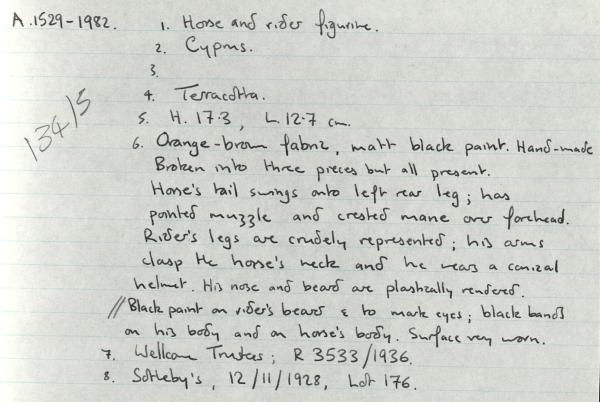 A.1529-1982. 1. Horse and rider figurine.
2. Cyprus.
3.
4. Terracotta.
134/5
5. H. 17.3, L. 12.7 cm.
6. Orange-brown fabric, matt black paint. Hand-made
Broken into three pieces but all present.
Horse's tail swings onto left rear leg; has
pointed muzzle and crested mane over forehead.
Rider's legs are crudely represented; his arms
clasp the horse's neck and he wears a conical
helmet. His nose and beard are plastically rendered.
// Black paint on rider's beard & to mark eyes; black bands
on his body and on horse's body. Surface very worn.
7. Wellcome Trustees; R 3533/1936.
8. Sotheby's, 12/11/1928, Lot 176.